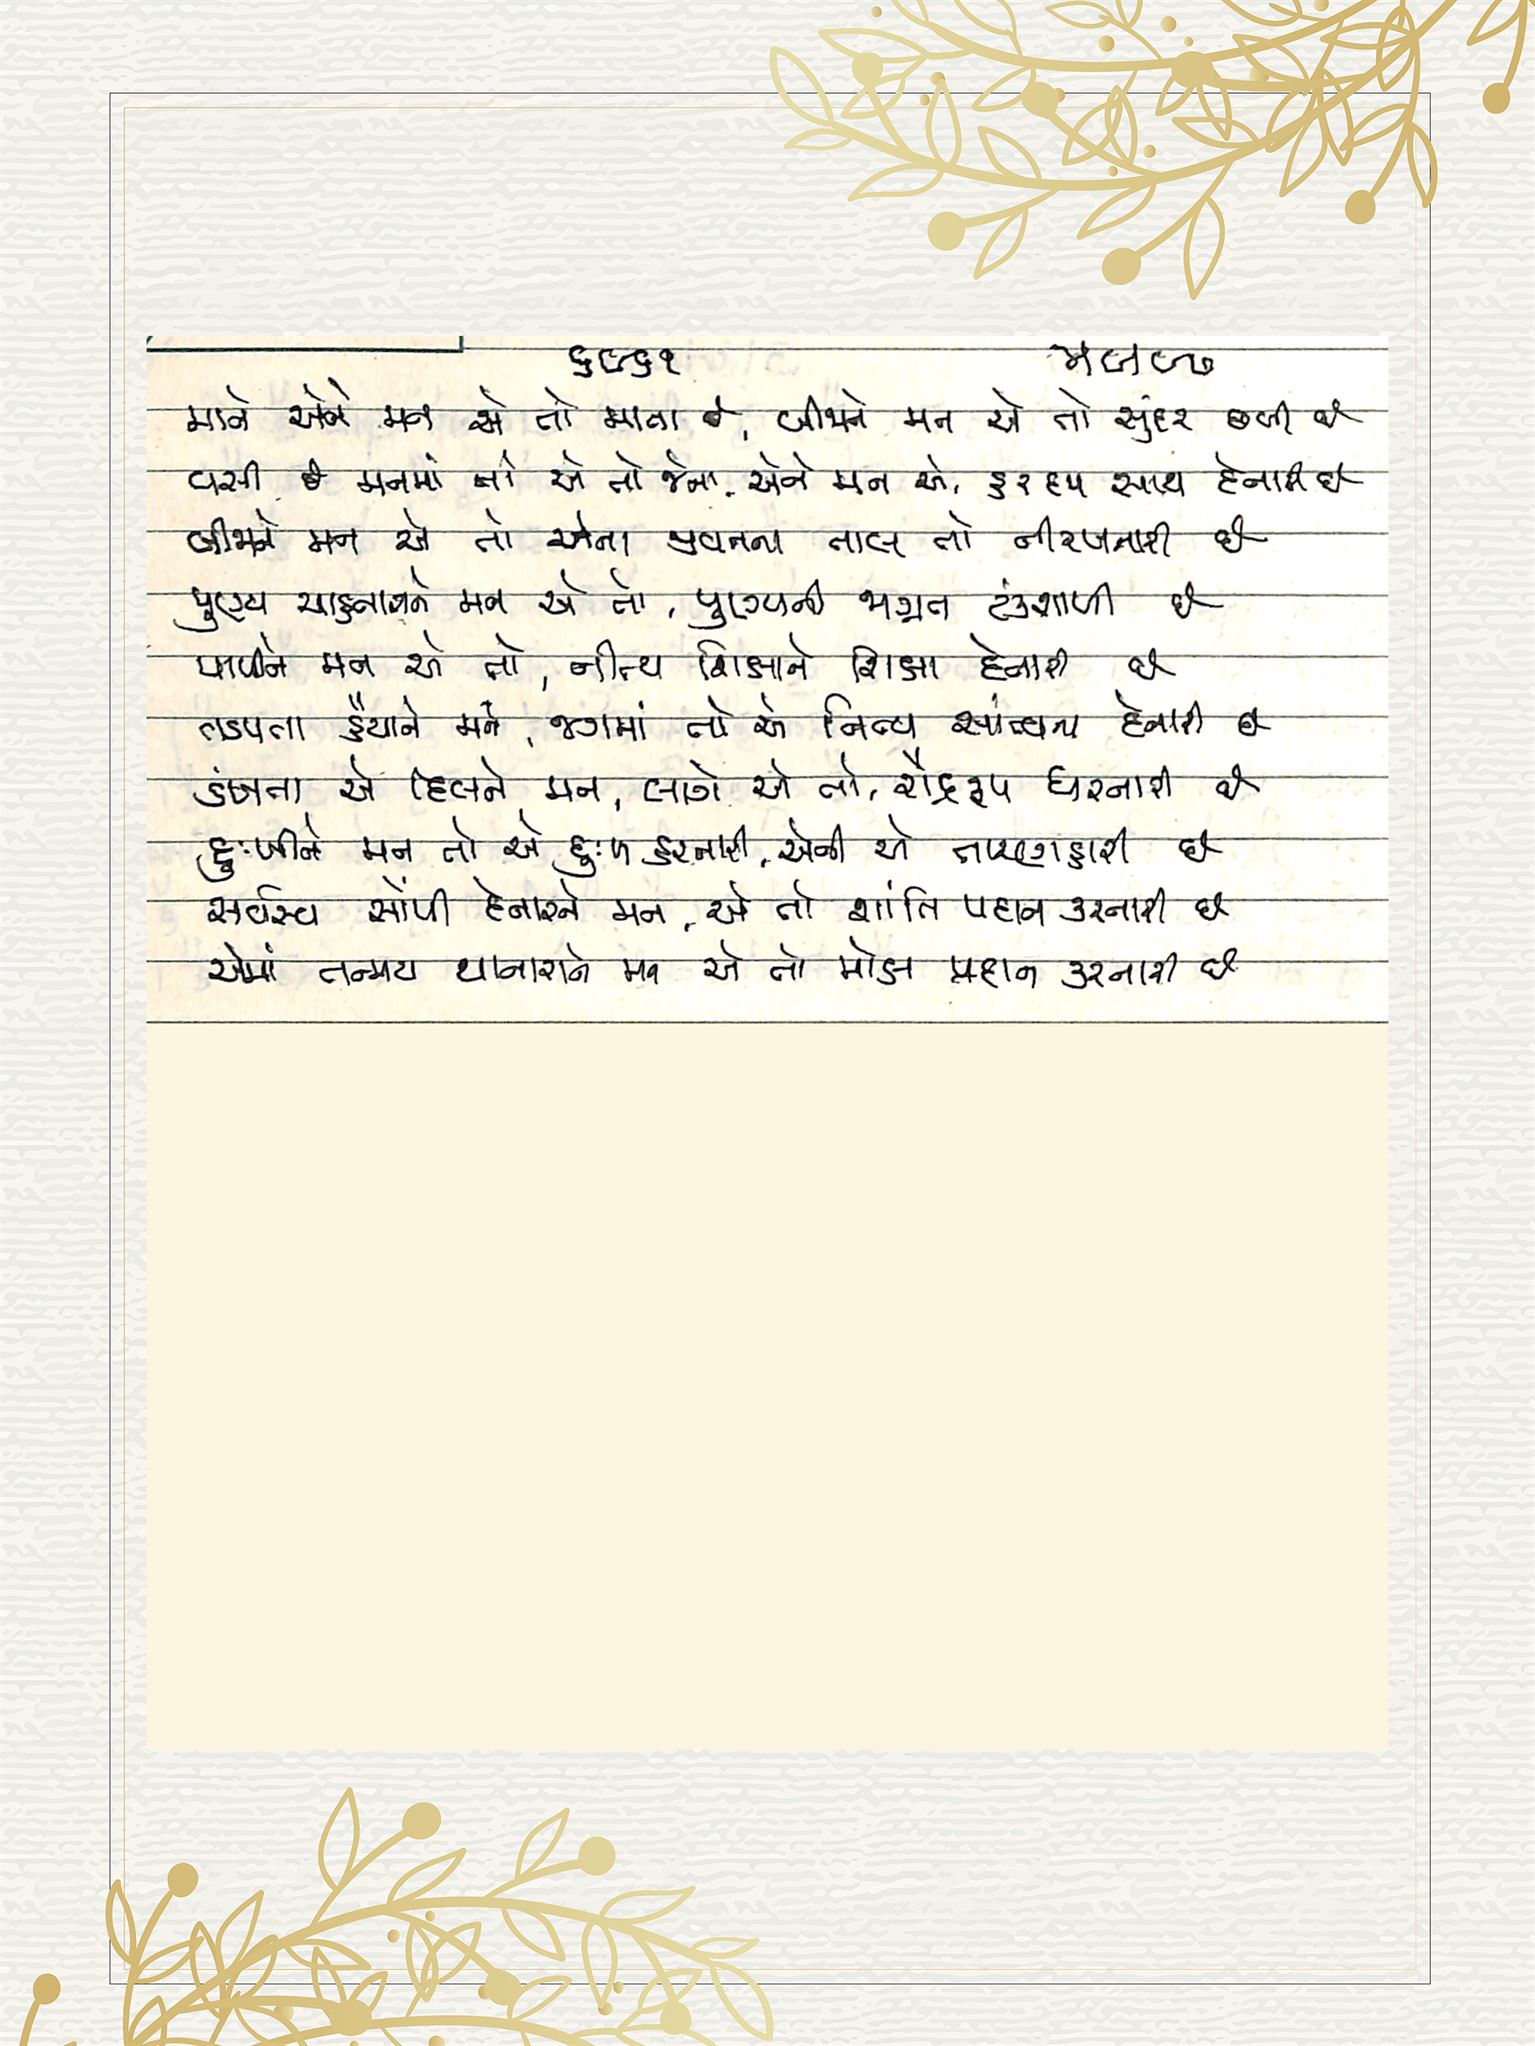 માને એને મન એ તો માતા છે, બીજાને મન એ તો સુંદર છબી છે
વસી છે મનમાં જો એ તો જેના, એને મન એ, હરદમ સાથ દેનારી છે
બીજાને મન એ તો એના જીવનના તાલ તો નીરખનારી છે
પુણ્ય ચાહનારાને મન એ તો, પુણ્યની ટંકશાળી છે
પાપીને મન એ તો, નીત્ય શિક્ષાને શિક્ષા દેનારી છે
તડપતા હૈયાને મન, જગમાં તો એ નિત્ય સાંત્વના દેનારી છે
ડંખતા એ દિલને મન, લાગે એ તો, રૌદ્રરૂપ ધરનારી છે
દુઃખીને મન તો એ દુઃખ હરનારી, એની એ તારણહારી છે
સર્વસ્વ સોંપી દેનારને મન, એ તો શાંતિ પ્રદાન કરનારી છે
એમાં તન્મય થાનારાને મન એ તો મોક્ષ પ્રદાન કરનારી છે